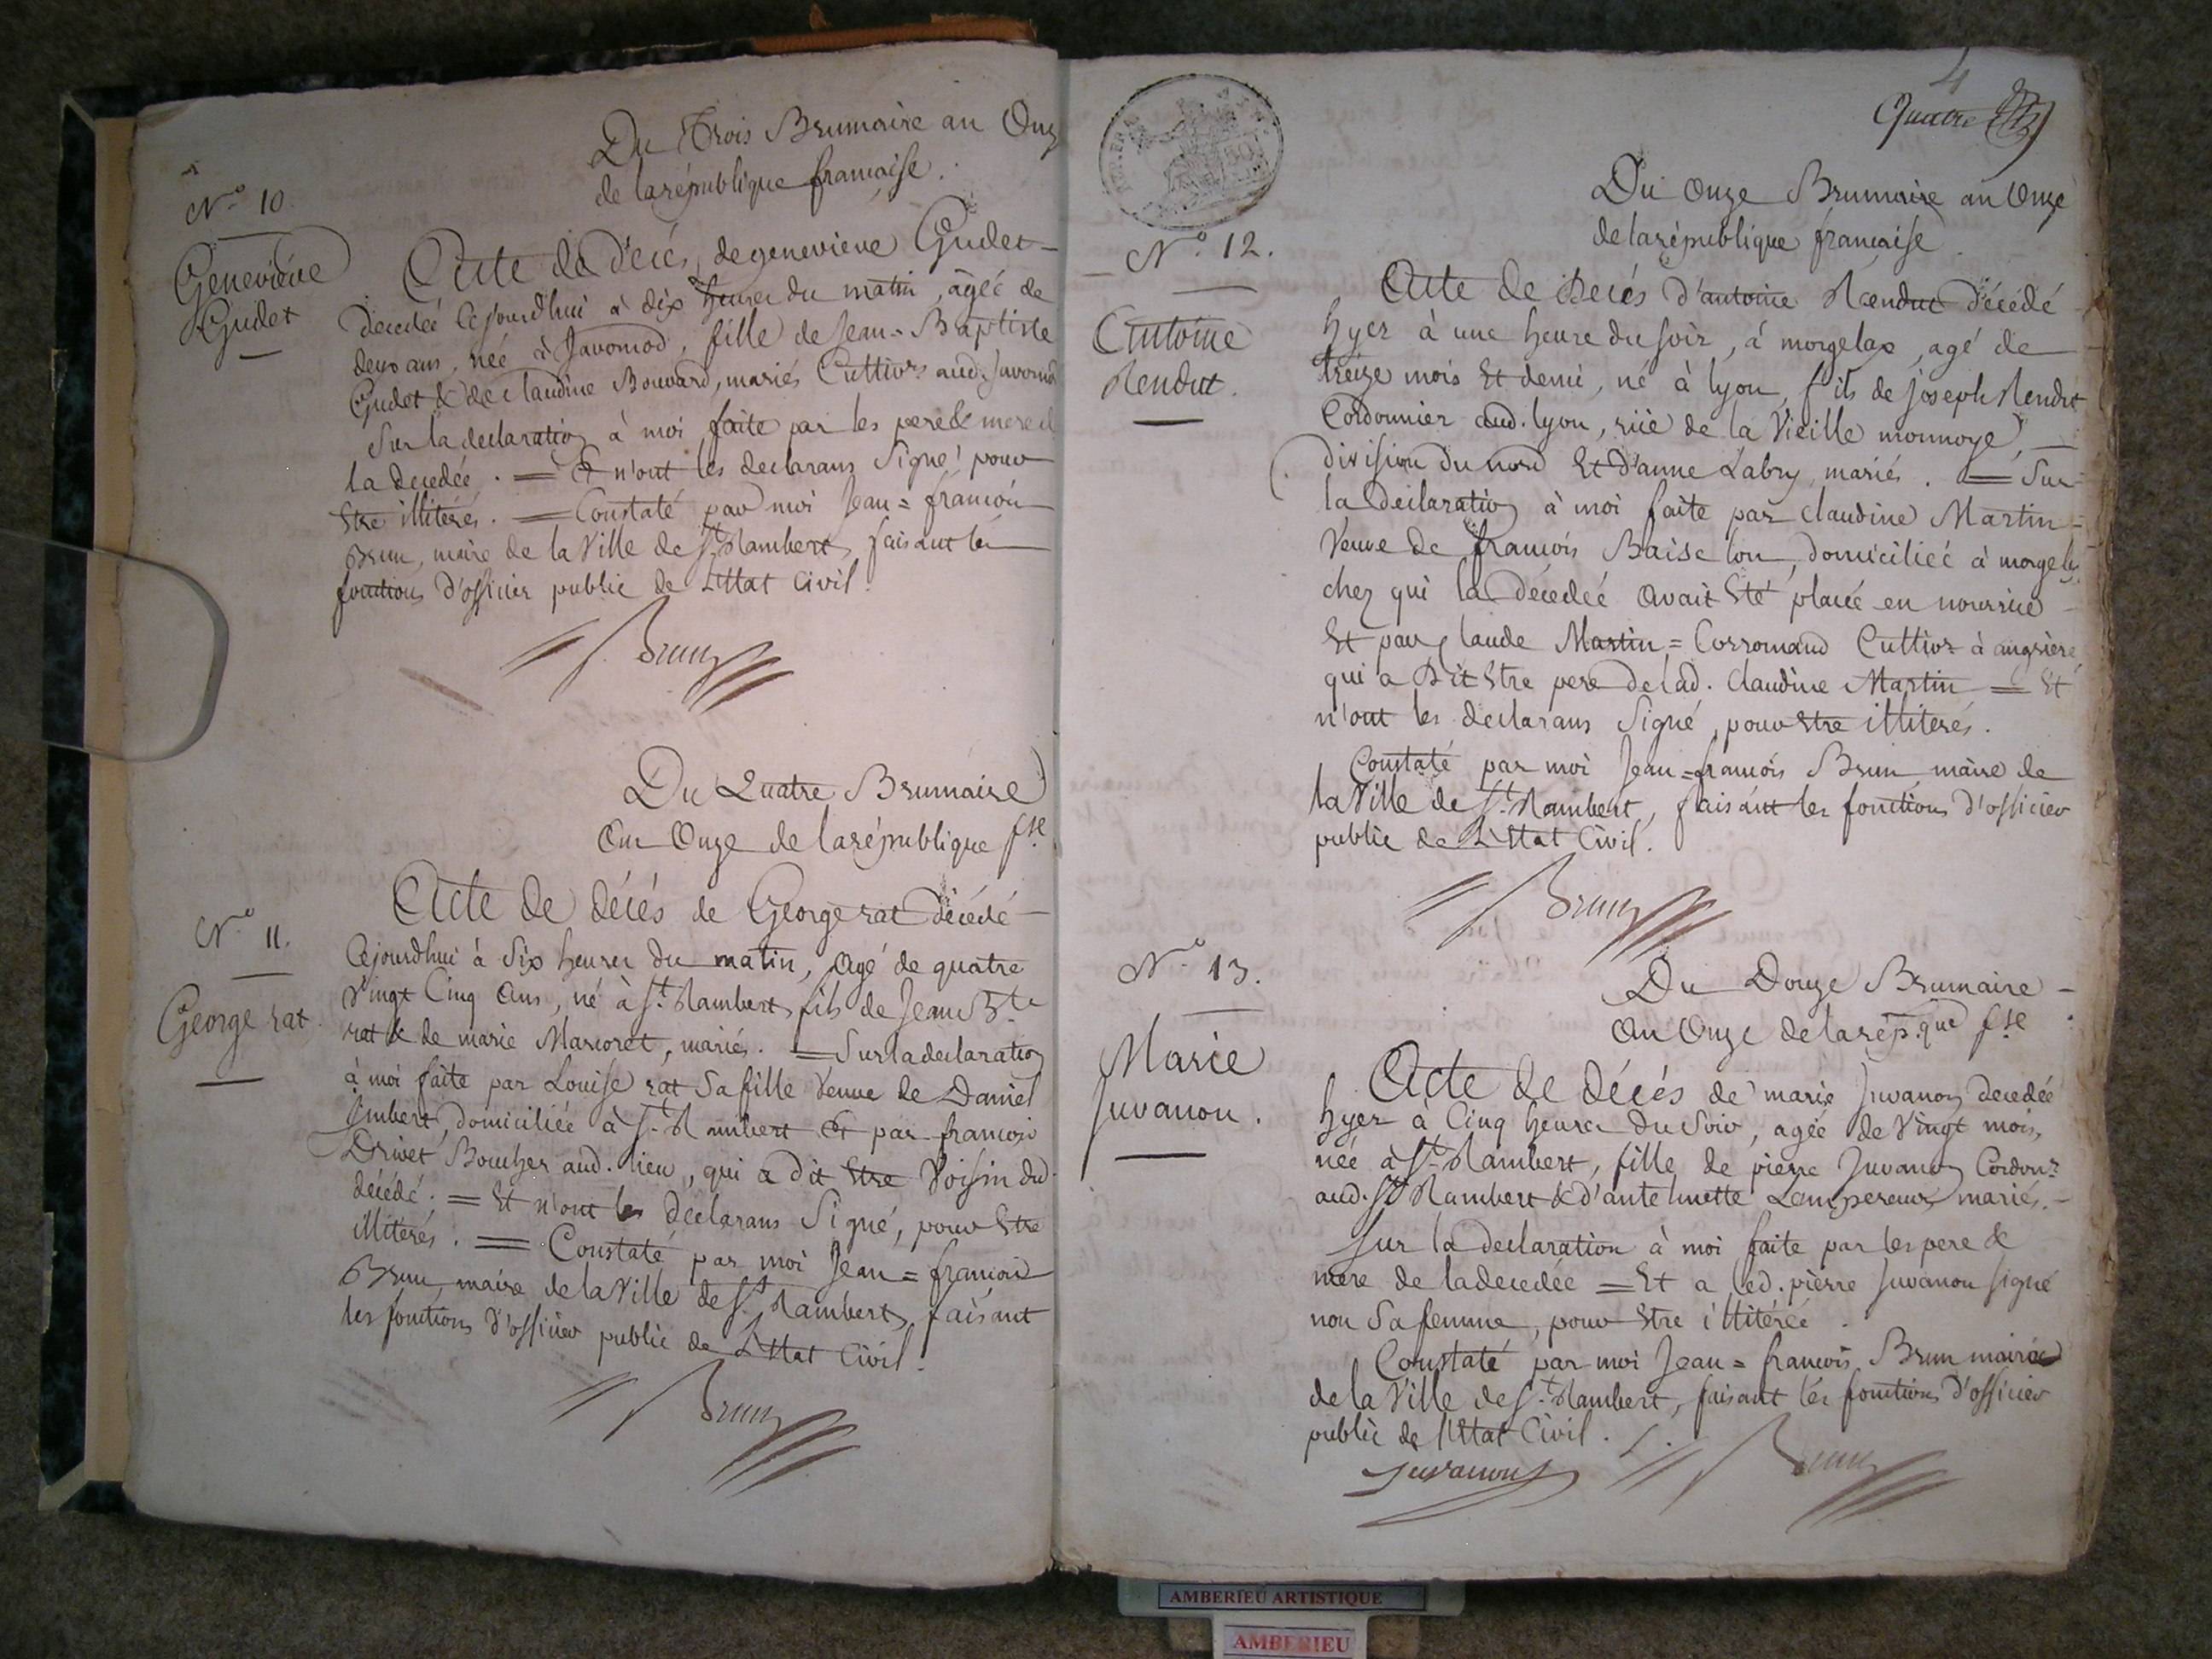 Du Trois Brumaire an Onz
de la république française.
N.o 10.
Geneviève
Gudet
Acte de décés de geneviéve Gudet
decedée Cejourdhui à dix heures du matin, agée de
deux ans, née à Javornod, fille de Jean-Baptiste
Gudet & de claudine Bouvard, mariés Cultivrs aud. Javornod
Sur la declaration à moi faite par les pere & mere de
la decedée. = Et n'ont les declarans Signé pour
Etre illiterés. = Constaté par moi Jean=francois
Brun, maire de la Ville de St. Rambert, faisant les
fonctions d'officier public de L'Etat Civil.
Brun
Du Quatre Brumaire
An Onze de la république fse.
N.o 11.
George rat.
Acte de décés de George rat décédé
Cejourdhui à Six heures du matin, agé de quatre
Vingt Cinq ans, né à St. Rambert, fils de Jean Bte
rat & de marie Marcoret, mariés. = Sur la declaration
à moi faite par Louise rat Sa fille Veuve de Daniel
Imbert, domiciliée à St. Rambert Et par francois
Drivet Boucher aud. lieu, qui a dit Etre Voisin dud.
décédé. = Et n'ont les déclarans Signé, pour Etre
illiterés. = Constaté par moi Jean=francois
Brun, maire de la Ville de St. Rambert, faisant
les fonctions d'officier public de L'Etat Civil.
Brun
4
Quatre
Du Onze Brumaire an Onze
de la république française
N.o 12.
Antoine
Rendut.
Acte de Decés d'antoine Rendut décédé
hyer à une heure du soir, à morgelas, agé de
treize mois Et demi, né à lyon, fils de joseph Rendut
Cordonnier aud. lyon, rüe de la Vieille monnoye,
division du nord Et d'anne Labry, mariés. = Sur
la declaration à moi faite par claudine Martin
Veuve de francois Baise lon, domiciliée à morgelas
chez qui la décedée avait Eté placée en nourrice
Et par claude Martin=Corromand Cultivr. à angriere
qui a Dit Etre pere de lad. claudine Martin = Et
n'ont les declarans Signé, pour Etre illiterés.
Constaté par moi Jean=francois Brun maire de
la Ville de St. Rambert, faisant les fonctions d'officier
public de L'Etat Civil.
Brun
Du Douze Brumaire
An Onze de la rép.que fse
N.o 13.
Marie
Juvanon.
Acte de décés de marie Juvanon decedée
hyer à Cinq heures du Soir, agée de Vingt mois,
née à St. Rambert, fille de pierre Juvanon Cordonr.
aud. St. Rambert & d'antelmette Lempereur mariés.
Sur la declaration à moi faite par les pere &
mere de la decedée = Et a led. pierre Juvanon signé
non Sa femme, pour Etre illitérée.
Constaté par moi Jean=francois Brun maire
de la Ville de St. Rambert, faisant les fonctions d'officier
public de l'Etat Civil.
Juvanon
Brun
AMBERIEU ARTISTIQUE
AMBERIEU